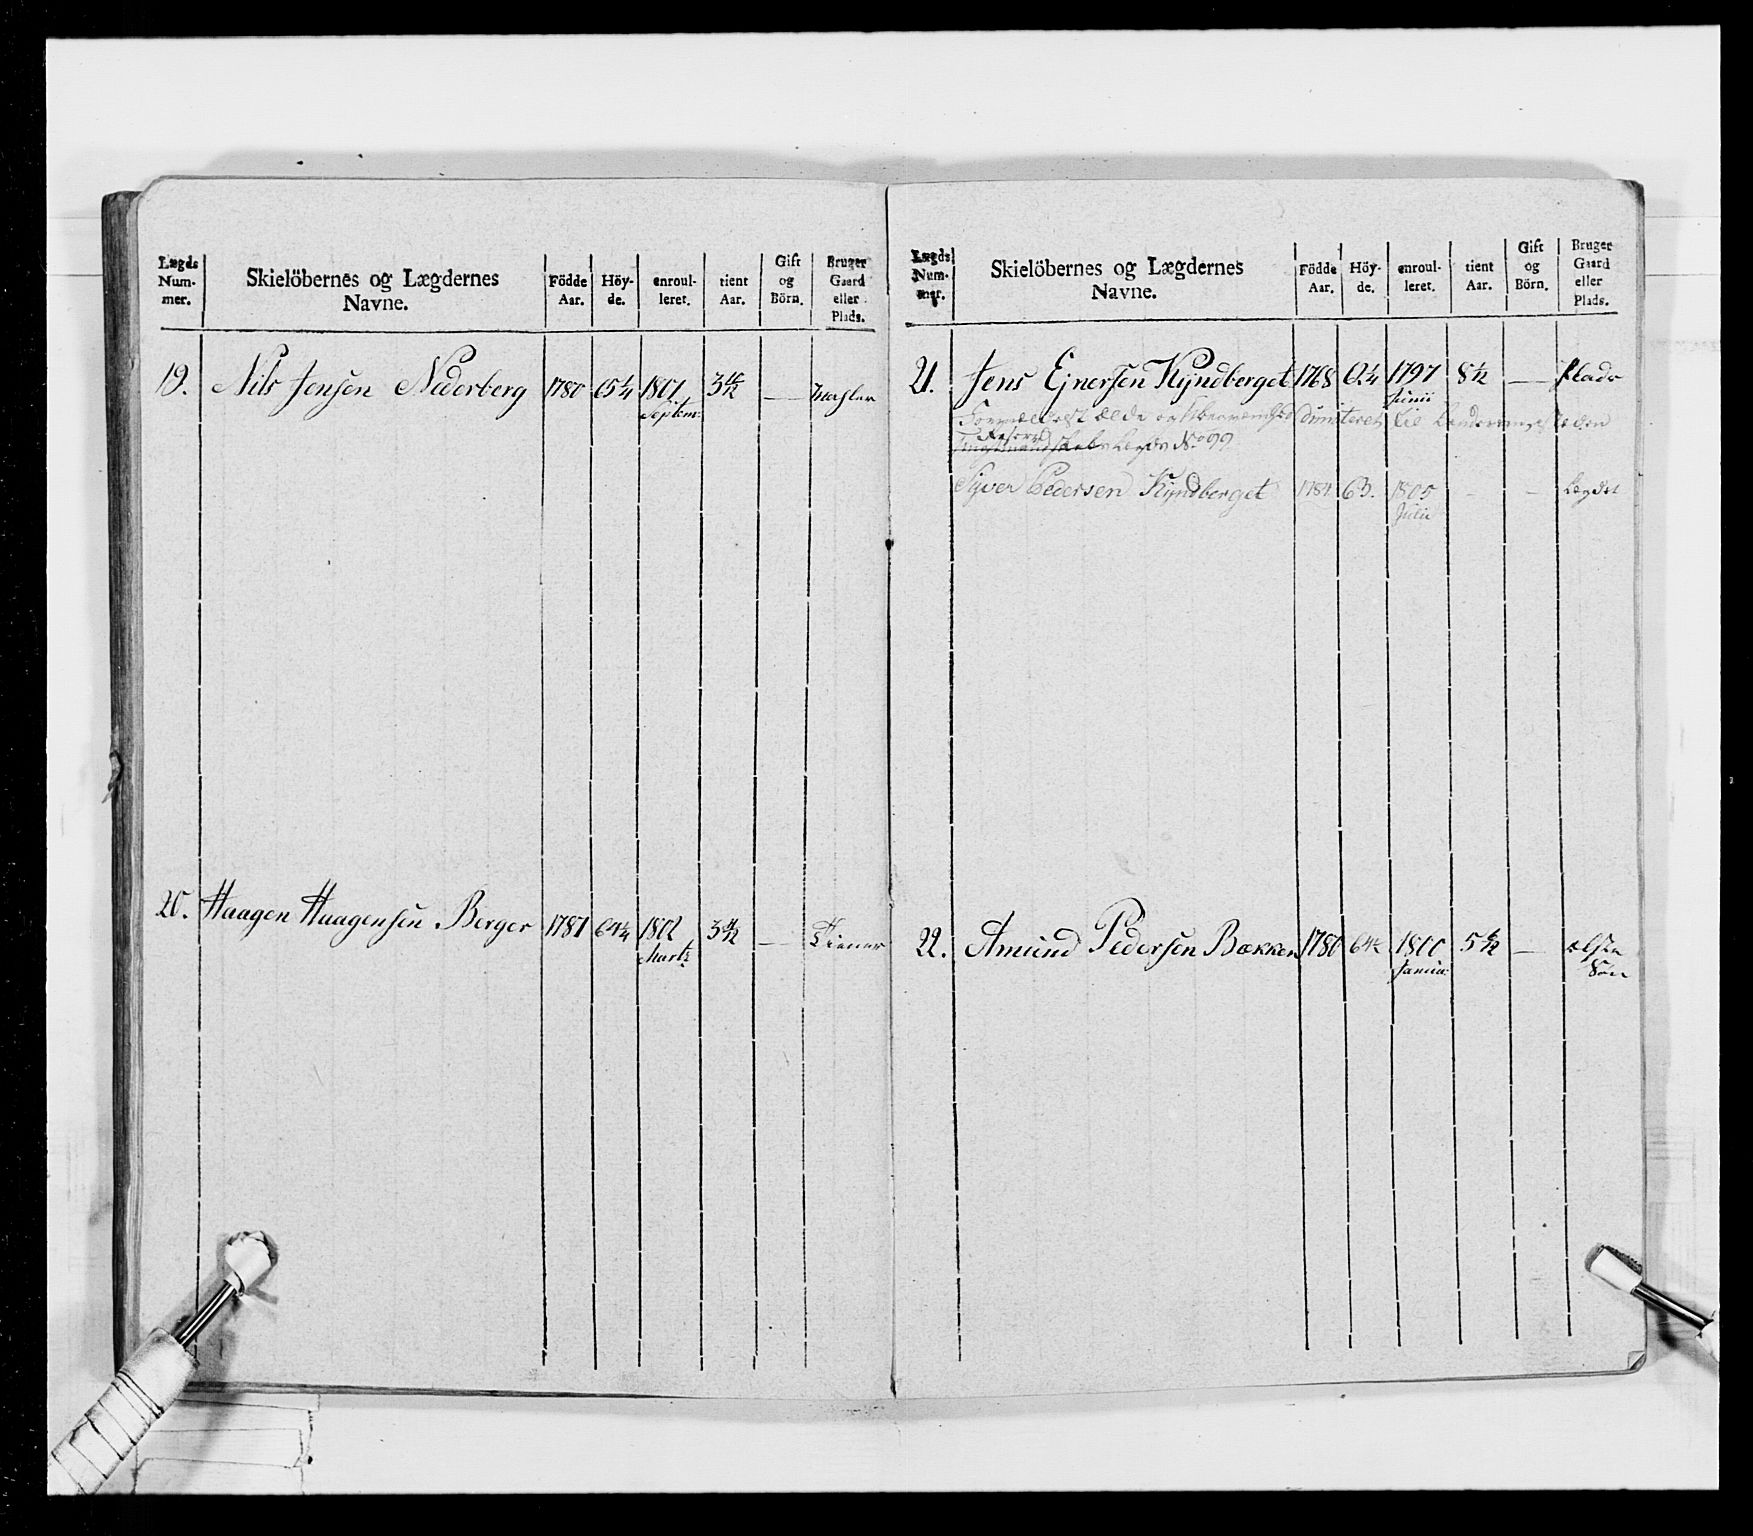 Lægds Num- mer. Skielöbernes og Lægdernes Navne. Födde Aar. Höy- de. enroul- leret. tient Aar. Gift og Börn. Bruger Gaard eller Plads.
19. Nils Jensen Nederberg 1780 65¼ 1801 3
Septem:
20. Haagen Haagensen Berger 1781 64¼ 1802 3 — Tiener
Marti
Lægds Num- mer. Skielöbernes og Lægdernes Navne. Födde Aar. Höy- de. enroul- leret. tient Aar. Gift og Börn. Bruger Gaard eller Plads.
21. Jens Ejnersen Kyndberget 1768 1797 8 — Plads
Junii
Reserve
Lægds No 99
Syver Pedersen Kyndberget 63. 1805 - - Lægdet
Julii
22. Amund Pedersen Bækken 1780 1800 5 — ælste
Janua: Sön